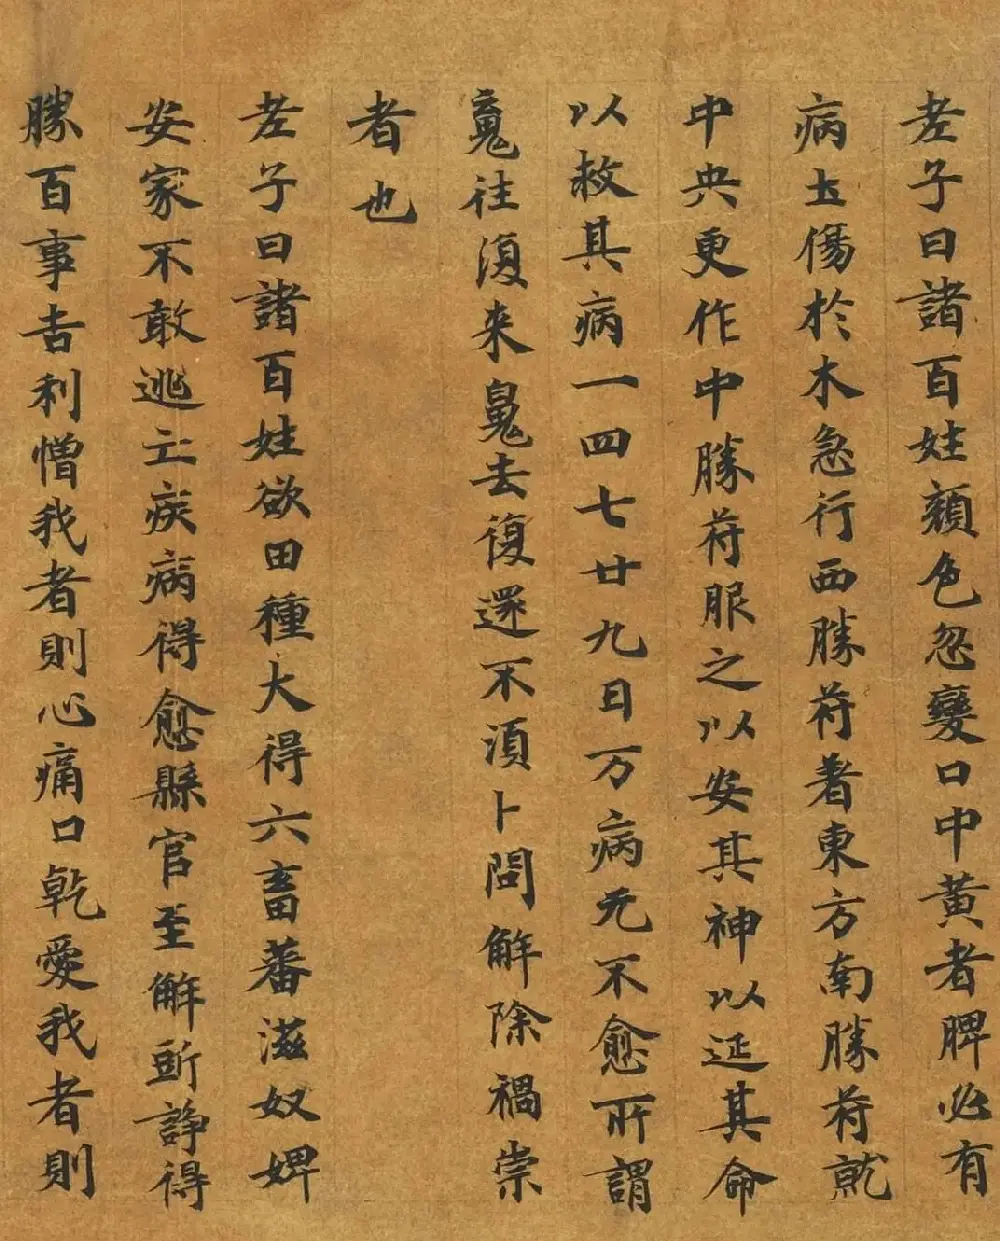 老子曰諸百姓顏色忽變口中黃者脾必有
病土傷於木急行西勝苻著東方南勝苻就
中央更作中勝苻服之以安其神以延其命
以救其病一四七廿九日万病无不愈所謂
䰟往復来鬼去復還不須卜問解除禍祟
者也
老子曰諸百姓欲田種大得六畜蕃滋奴婢
安家不敢逃亡疾病得愈縣官至解斷諍得
勝百事吉利憎我者則心痛口乾愛我者則